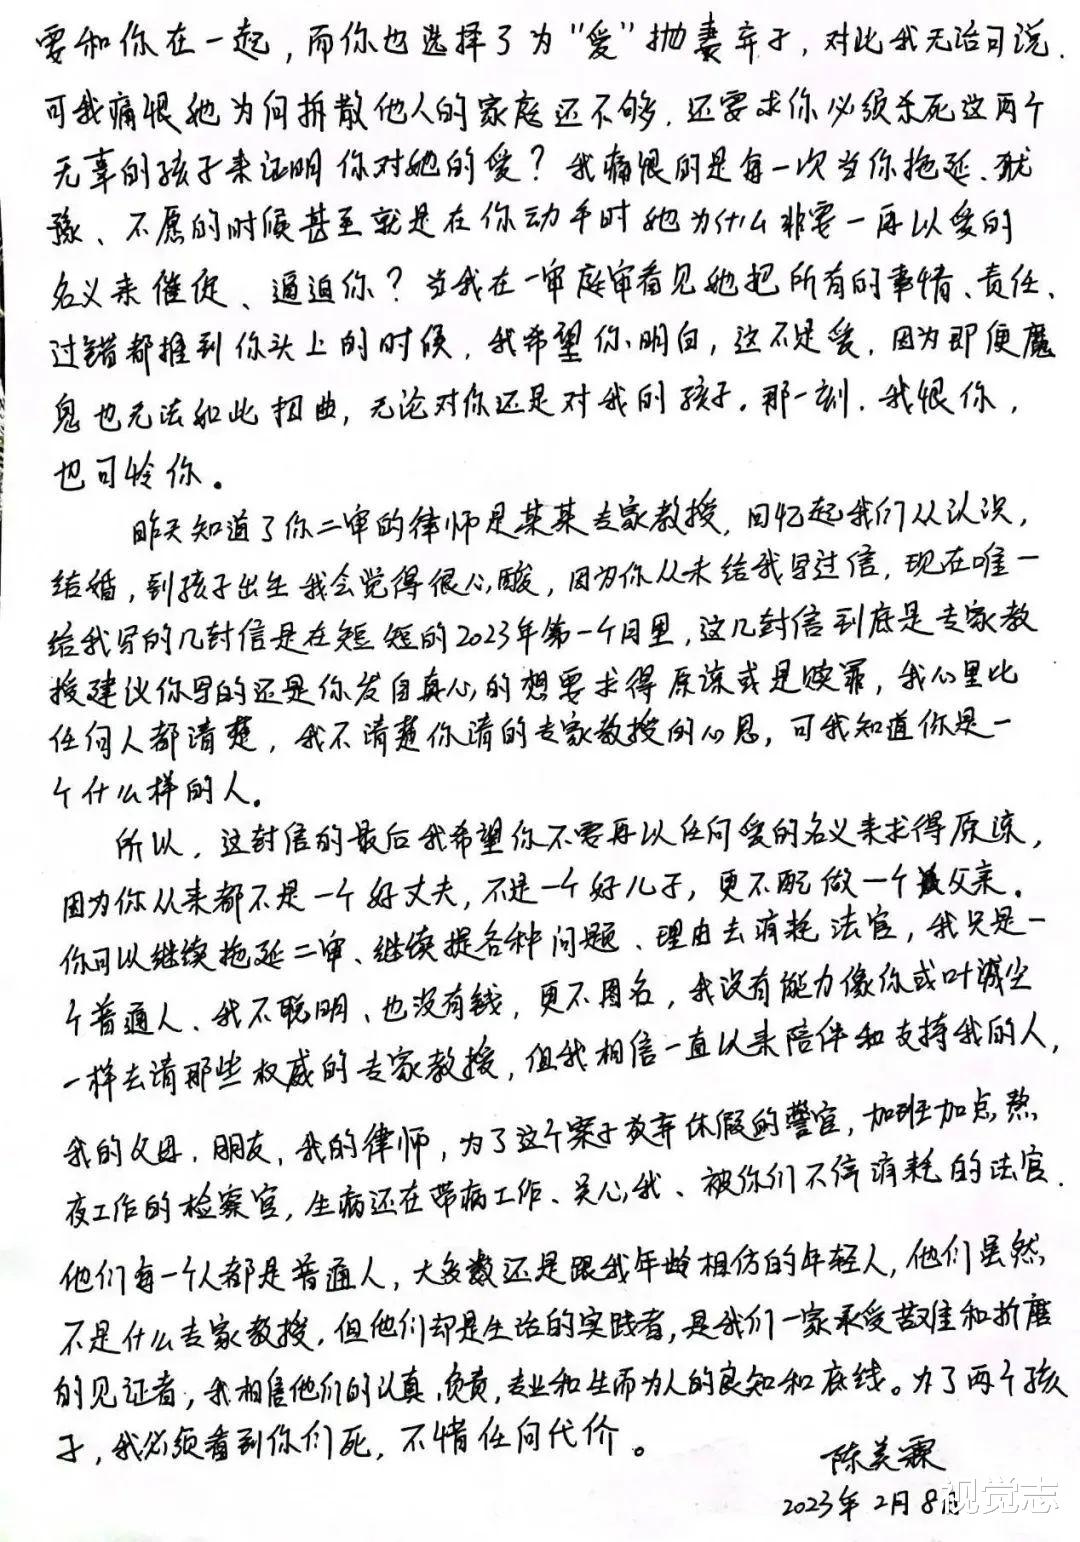 要和你在一起，而你也选择了为“爱”抛妻弃子，对此我无话可说.
可我痛恨她为何拆散他人的家庭还不够.还要求你必须杀死这两个
无辜的孩子来证明你对她的爱？我痛恨的是每一次当你拖延、犹
豫、不愿的时候甚至就是在你动手时她为什么非要一再以爱的
名义来催促、逼迫你？当我在一审庭审看见她把所有的事情、责任、
过错都推到你头上的时候，我希望你明白，这不是爱，因为即便魔
鬼也无法如此扭曲，无论对你还是对我的孩子。那一刻.我恨你，
也可怜你。
昨天知道了你二审的律师是某某专家教授，回忆起我们从认识，
结婚，到孩子出生我会觉得很心酸，因为你从未给我写过信，现在唯一
给我写的几封信是在短短的2023年第一个月里，这几封信到底是专家教
授建议你写的还是你发自真心的想要求得原谅或是赎罪，我心里比
任何人都清楚，我不清楚你请的专家教授的心思，可我知道你是一
个什么样的人。
所以，这封信的最后我希望你不要再以任何爱的名义来求得原谅，
因为你从来都不是一个好丈夫，不是一个好儿子，更不配做一个父亲。
你可以继续拖延二审、继续提各种问题、理由去消耗法官，我只是一
个普通人、我不聪明、也没有钱，更不图名，我没有能力像你或叶诚尘
一样去请那些权威的专家教授，但我相信一直以来陪伴和支持我的人，
我的父母，朋友，我的律师，为了这个案子放弃休假的警官，加班加点熬
夜工作的检察官，生病还在带病工作、关心我、被你们不停消耗的法官.
他们每一个人都是普通人，大多数还是跟我年龄相仿的年轻人，他们虽然
不是什么专家教授，但他们却是生活的实践者，是我们一家承受苦难和折磨
的见证者，我相信他们的认真，负责，专业和生而为人的良知和底线。为了两个孩
子，我必须看到你们死，不惜任何代价。
陈美霖
2023年2月8日
视觉志